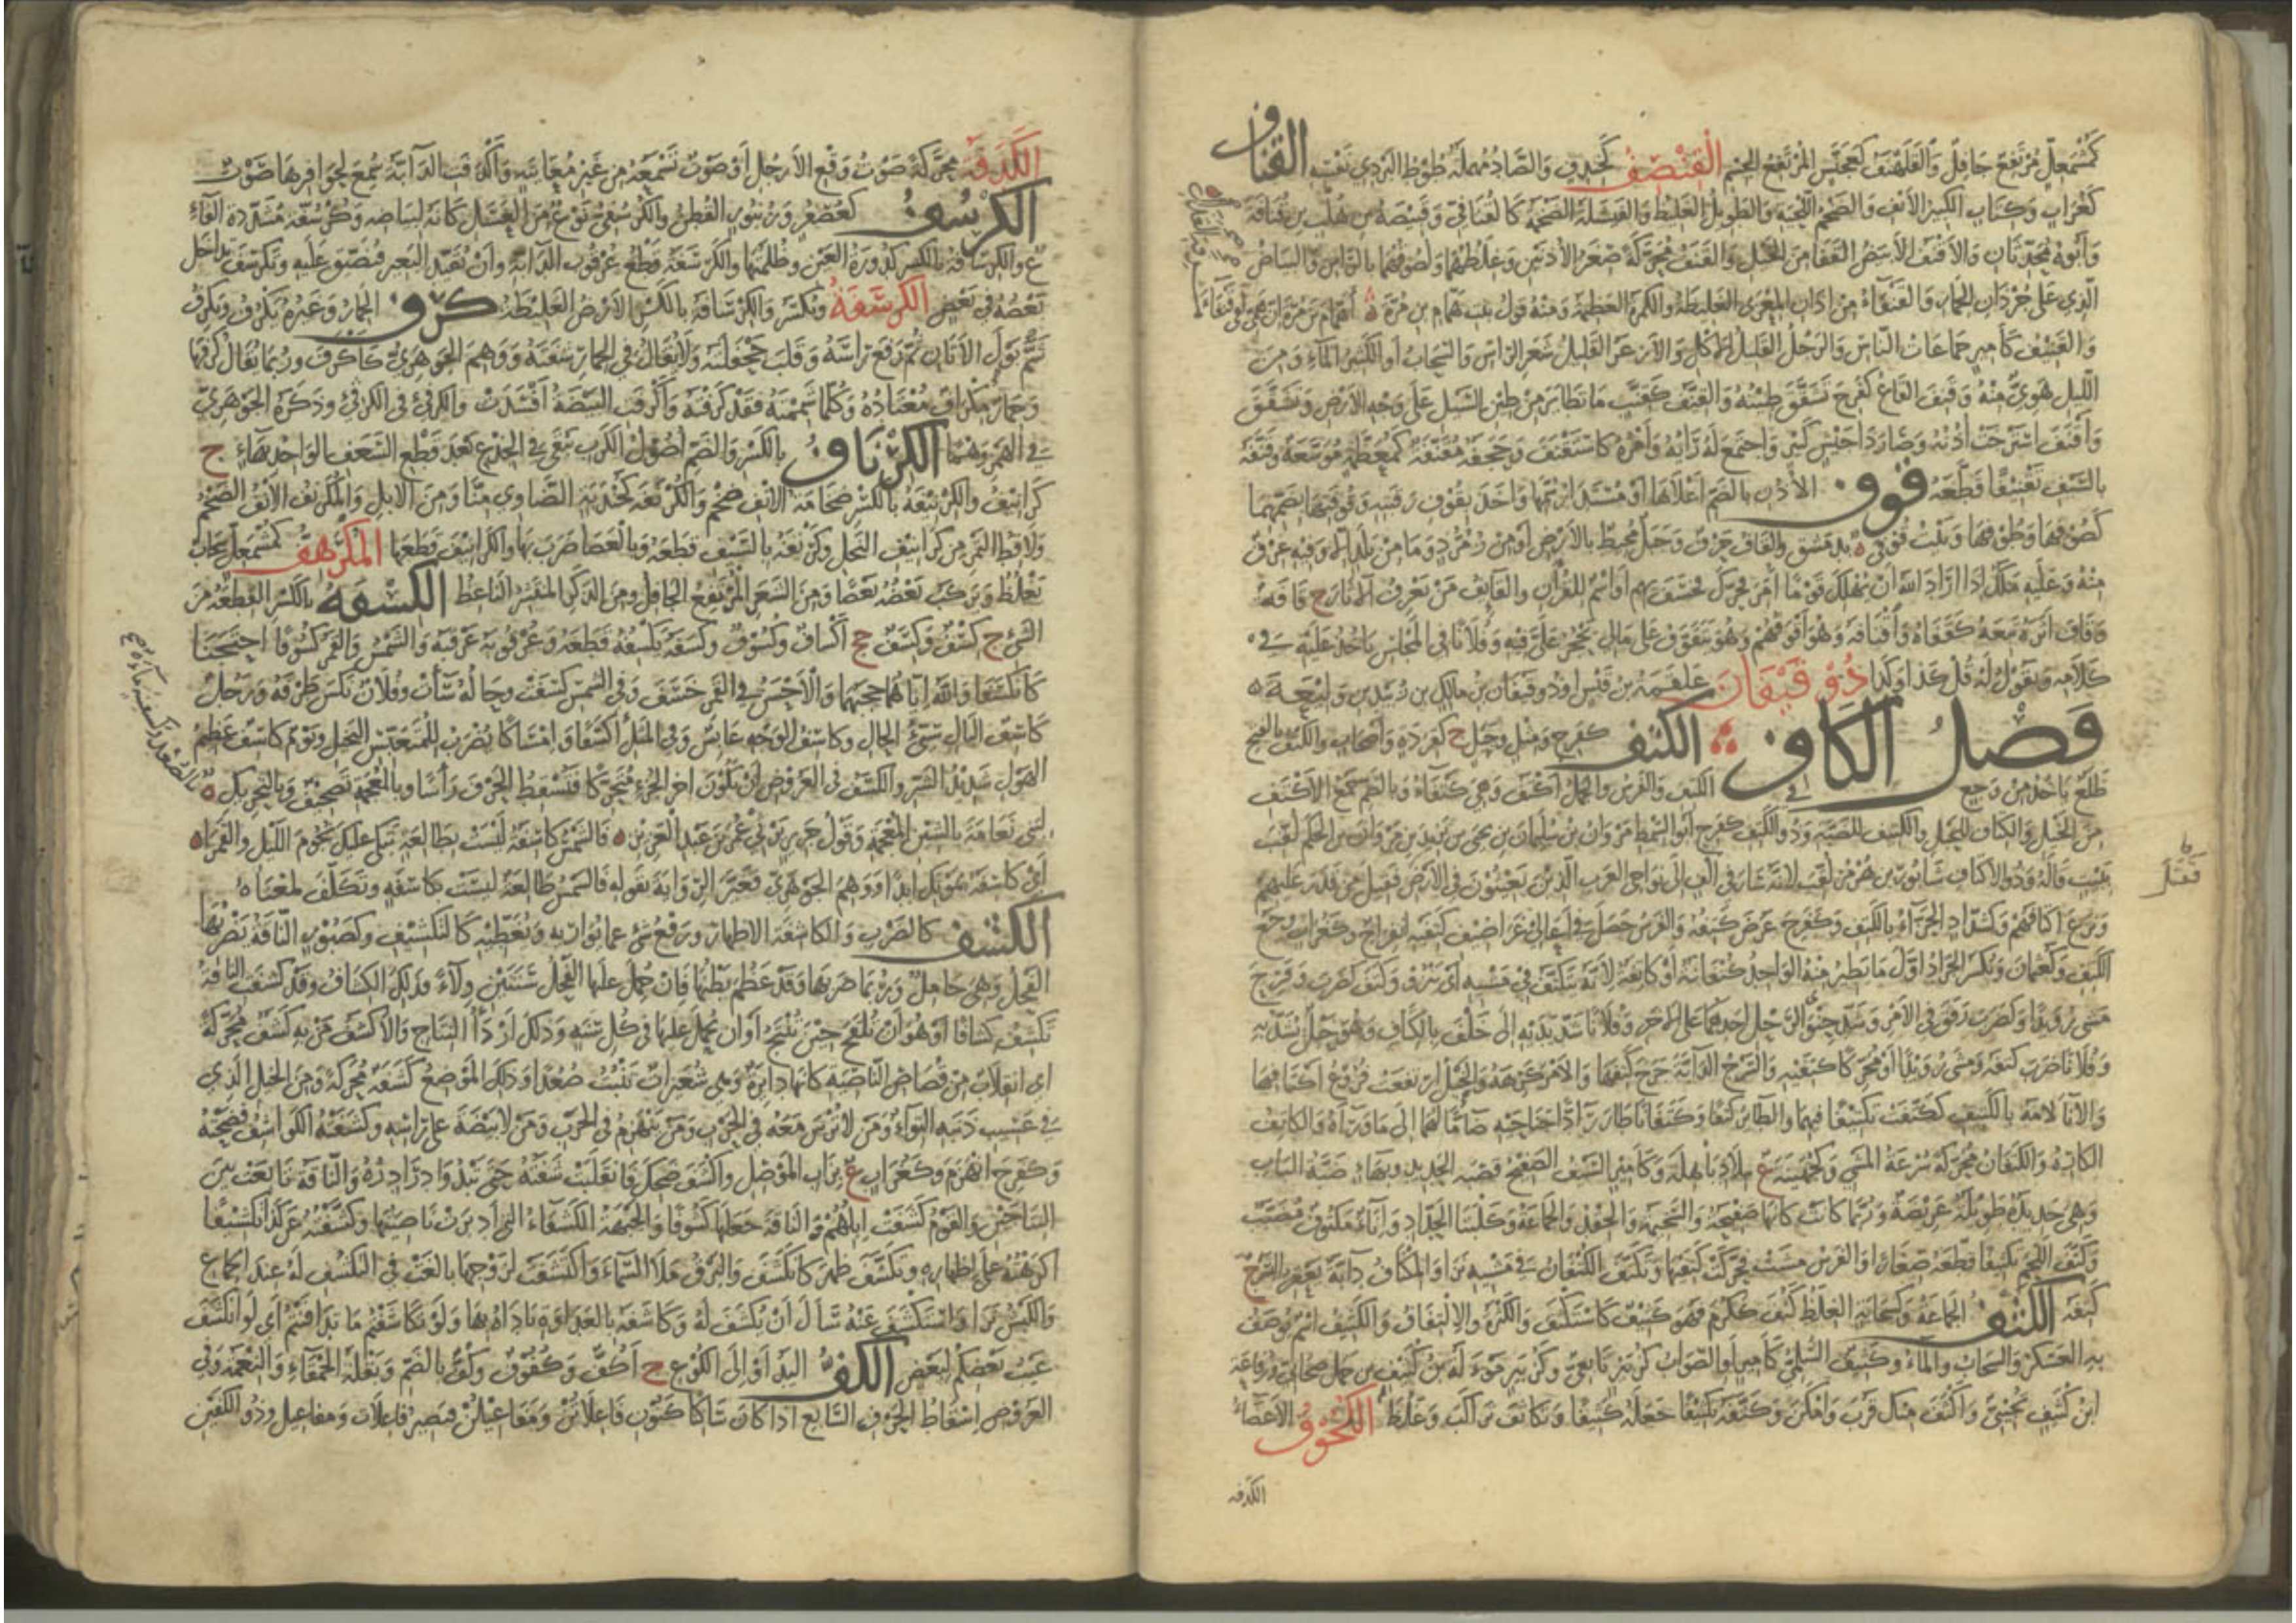 كمشمعل مرتفع جافل والقلهنف كعجنس المرتفع الجسم القنصف كخندف والصاد مهملة طوط البردي نفسه القناف
كغراب وكتاب الكبير الأنف والضخم اللحية والطويل الغليظ والفيشلة الضخمة كالقنافي وقبيصة بن هلب بن قنافة
وأبوه محدثان والأقنف الأبيض القفا من الخيل والقنف محركة صغر الأذنين وغلظهما ولصوقهما بالرأس والبياض
الذي على جردان الحمار والقنفاء من آذان المعزى الغليظة والكمرة العظيمة ومنه قول بنت همام بن مرة
والقنيف كأمير جماعات الناس والرجل القليل الأكل والأزعر القليل شعر الرأس والسحاب أو الكثير الماء ومن
الليل هوي منه وقنف القاع كفرح تشقق طينه والقنف كقنب ما تطاير من طين السيل على وجه الأرض وتشقق
وأقنف استرخت أذنه وصار ذا جيش كبير واجتمع له رأيه وأمره كاستقنف وحجفة مقنفة كمعظمة موسعة وقنفه
بالسيف تقنيفا قطعه قوف الأذن بالضم أعلاها أو مستدار سمها وأخذ بقوف رقبته وقوفتها بضمهما
كصوفها وطوفها وبيت قوفى بدمشق والقاف حرف وجبل محيط بالأرض أو من زمرد وما من بلد إلا وفيه عرق
منه وعليه ملك إذا أراد الله أن يهلك قوما أمره فحرك فخسف بهم أو اسم للقرآن والقائف من يعرف الآثار ج قافة
وقاف أثره تبعه كقفاه واقتافه وهو أقوفهم وهو يتقوف على مالي يحجر علي فيه وفلانا في المجلس يأخذ عليه في
كلامه ويقول له قل كذا وكذا ذو قيفان علقمة بن قيس أو ذو قيفان بن مالك بن زبيد بن وليعة
فصل الكاف الكتف كفرح ومثل وحبل ج كقردة وأصحاب والكتف بالفتح
ظلع يأخذ من وجع في الكتف والفرس والجمل أكتف وهي كتفاء وبالضم جمع الأكتف
من الخيل والكتاف للحبل والكتيف للضبة وذو الكتف كفرح أبو السمط مروان بن سليمان بن يحيى بن يزيد بن مروان بن الحكم لقب
ببيت قاله وذو الأكتاف سابور بن هرمز لقب لأنه سار في ألف إلى نواحي العرب الذين يعيثون في الأرض فقتل من قدر عليهم
ونزع أكتافهم وكشداد الحزاء بالكتف وكفرح عرض كتفه والفرس حصل في أعالي غراضيف كتفيه انفراج وكغراب وجع
الكتف وكعثمان ويكسر الجراد أول ما يطير منه الواحدة كتفانة أو كاتفة لأنه يتكتف في مشيه أي ينزو وكتف كضرب وفرح
مشى رويدا وكضرب رفق في الأمر وشد حنوي الرحل أحدهما على الآخر وفلانا شد يديه إلى خلف بالكتاف وهو حبل يشد به
وفلانا ضرب كتفه ومشى رويدا أو محركا كتفيه والسرج الدابة جرح كتفها والأمر كرهه والخيل ارتفعت فروع أكتافها
والإناء لأمه بالكتيف ككتفت تكتيفا فيهما والطائر كتفا وكتفانا طار رادا جناحيه ضاما لهما إلى ما وراءه والكاتف
الكاره والكتفان محركة سرعة المشي وكجهينة ع ببلاد باهلة وكأمير السيف الصفيح وضبة الحديد وبهاء ضبة الباب
وهي حديدة طويلة عريضة وربما كانت كأنها صفيحة والسخيمة والحقد والجماعة وكلبتا الحداد وإناء مكتوف مضبب
وكتف اللحم تكتيفا قطعه صغارا والفرس مشت فحركت كتفيها وتكتف الكتفان في مشيه نزا والمكتاف دابة يعقر السرج
كتفه الكثف الجماعة وكسحابة الغلظ كثف ككرم فهو كثيف كاستكثف والكثرة والالتفاف والكثيف اسم يوصف
به العسكر والسحاب والماء وكثيف السلمي كأمير أو الصواب كزبير تابعي وكزبير مولاة له بن كثيف بن حمل صحابي ورفاعة
ابن كثيف تجيبي وأكثف منك قرب وأمكن وكثفه تكثيفا جعله كثيفا وتكاثف تراكب وغلظ الكحوف الأعضاء
الكدفة
قفتل
الكدفة محركة صوت وقع الأرجل أو صوت تسمعه من غير معاينة وأكدفت الدابة سمع لحوافرها صوت
الكرسف كعصفر وزنبور القطن والكرسفي نوع من العسل كأنه لبياضه وكرسفة مشددة الفاء
ع والكرسافة بالكسر كدورة العين وظلمتها والكرسفة قطع عرقوب الدابة وأن تقيد البعير فتضيق عليه وتكرسف تداخل
بعضه في بعض الكرشفة وتكسر والكرشافة بالكسر الأرض الغليظة كرف الحمار وغيره يكرف ويكرف
شم بول الأتان ثم رفع رأسه وقلب جحفلته ولا يقال في الحمار شفته ووهم الجوهري كأكرف وربما يقال كرفها
وحمار مكراف معتاده وكلما شممته فقد كرفته وأكرفت البيضة أفسدت والكرفئ في الكرفئ وذكره الجوهري
في الهمز وهنا الكرناف بالكسر والضم أصول الكرب تبقى في الجذع بعد قطع السعف الواحد بهاء ج
كرانيف والكرنيفة بالكسر ضخامة الأنف ضخم والكرنفة كخندفة الضاوي منا ومن الإبل والمكرنف الأنف الضخم
ولاقط التمر من كرانيف النخل وكرنفه بالسيف قطعه وبالعصا ضرب بها والكرانيف قطعها المكرهف كمشمعل سحاب
يغلظ ويركب بعضه بعضا ومن الشعر المرتفع الجافل ومن الذكر المنتشر الناعظ الكسفة بالكسر القطعة من
الشيء ج كسف وكسف جج أكساف وكسوف وكسفه يكسفه قطعه وعرقوبه عرقبه والشمس والقمر كسوفا احتجبا
كانكسفا والله إياهما حجبهما والأحسن في القمر خسف وفي الشمس كسفت وحاله ساءت وفلان نكس طرفه ورجل
كاسف البال سيئ الحال وكاسف الوجه عابس وفي المثل أكسفا وإمساكا يضرب للمتعبس البخيل ويوم كاسف عظيم
الهول شديد الشر والكسف في العروض أن يكون آخر الجزء متحركا فتسقط الحرف رأسا وبالمعجمة تصحيف وبالتحريك
فالشمس كاسفة ليست بطالعة تبكي عليك نجوم الليل والقمرا
أي كاسفة لموتك أبدا ووهم الجوهري فغير الرواية بقوله فالشمس طالعة ليست بكاسفة وتكلف لمعناه
الكشف كالضرب والكاشفة الإظهار ورفع شيء عما يواريه ويغطيه كالتكشيف وكصبور الناقة يضربها
الفحل وهي حامل وربما ضربها وقد عظم بطنها فإن حمل عليها الفحل سنتين ولاء فذلك الكشاف وقد كشفت الناقة
تكشف كشافا أو هو أن تلقح حين تنتج أو أن يحمل عليها في كل سنة وذلك أردأ النتاج والأكشف من به كشف محركة
أي انقلاب من قصاص الناصية كأنها دائرة وهي شعيرات تنبت صعدا وذلك الموضع كشفة محركة ومن الخيل الذي
في عسيب ذنبه التواء ومن لا ترس معه في الحرب ومن ينهزم في الحرب ومن لا بيضة على رأسه وكشفته الكواشف فضحته
وكفرح انهزم وكغراب ع بزاب الموصل وأكشف ضحك فانقلبت شفته حتى تبدو درادره والناقة تابعت بين
النتاجين والقوم كشفت إبلهم والناقة جعلها كشوفا والجبهة الكشفاء التي أدبرت ناصيتها وكشفته عن كذا تكشيفا
أكرهته على إظهاره وتكشف ظهر كانكشف والبرق ملأ السماء واكتشفت لزوجها بالغت في التكشف له عند الجماع
والكبش نزا واستكشف عنه سأل أن يكشف له وكاشفه بالعداوة باداه بها ولو تكاشفتم ما تدافنتم أي لو انكشف
عيب بعضكم لبعض الكف اليد أو إلى الكوع ج أكف وكفوف وكف بالضم وبقلة الحمقاء والنعمة وفي
العروض إسقاط الحرف السابع إذا كان ساكنا كنون فاعلاتن ومفاعيلن فيصير فاعلات ومفاعيل وذو الكفين